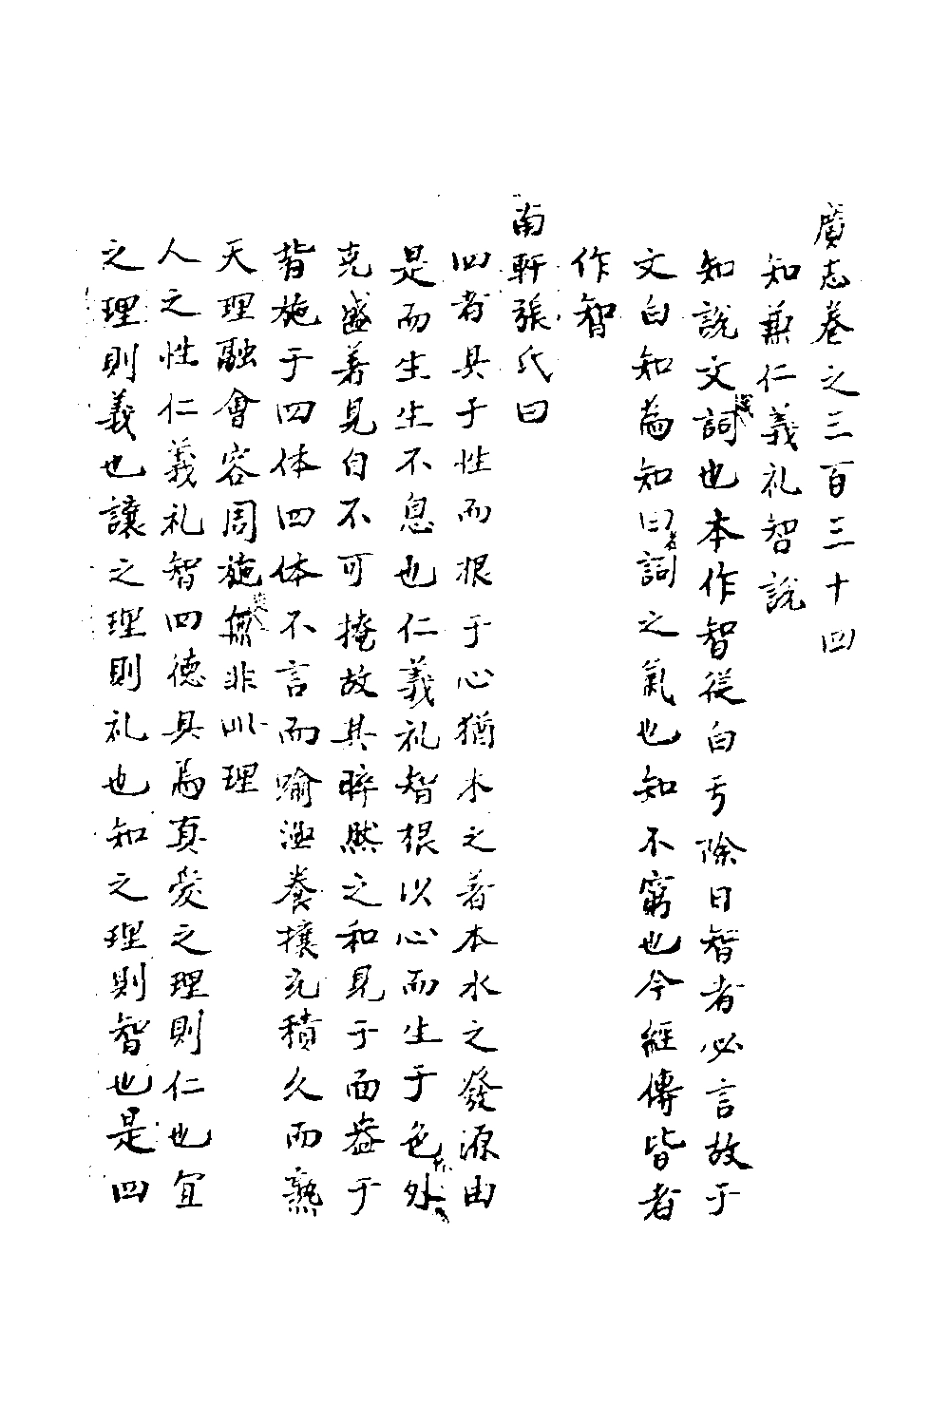 廣志卷之三百三十四
知兼仁義礼智說
知說文詞也本作智從白亏除日智者必言故于
文白知為知曰者詞之氣也知不窮也今經傳皆者
作智
南軒張氏曰
四者具于性而根于心猶木之着本水之發源由
是而生生不息也仁義礼智根以心而生于色外
充盛著見自不可掩故其睟然之和見于面盎于
背施于四体四体不言而喻涵養擴充積久而熟
天理融會容周施無非此理
人之性仁義礼智四德具焉真愛之理則仁也宜
之理則義也讓之理則礼也知之理則智也是四